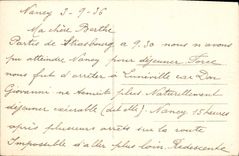 Nancy 3-9-36
Ma chère Berthe
Partie de Strasbourg a 9.30 nous n'avons
pu atteindre Nancy pour déjeuner Force
nous fut d'arrêter a Luneville car Don
Giovanni ne plus Naturellement
déjeuner exécrable (dit elle). Nancy 15 heures
après plusieurs arrêts sur la route
Impossible d'aller plus loin. Redescente